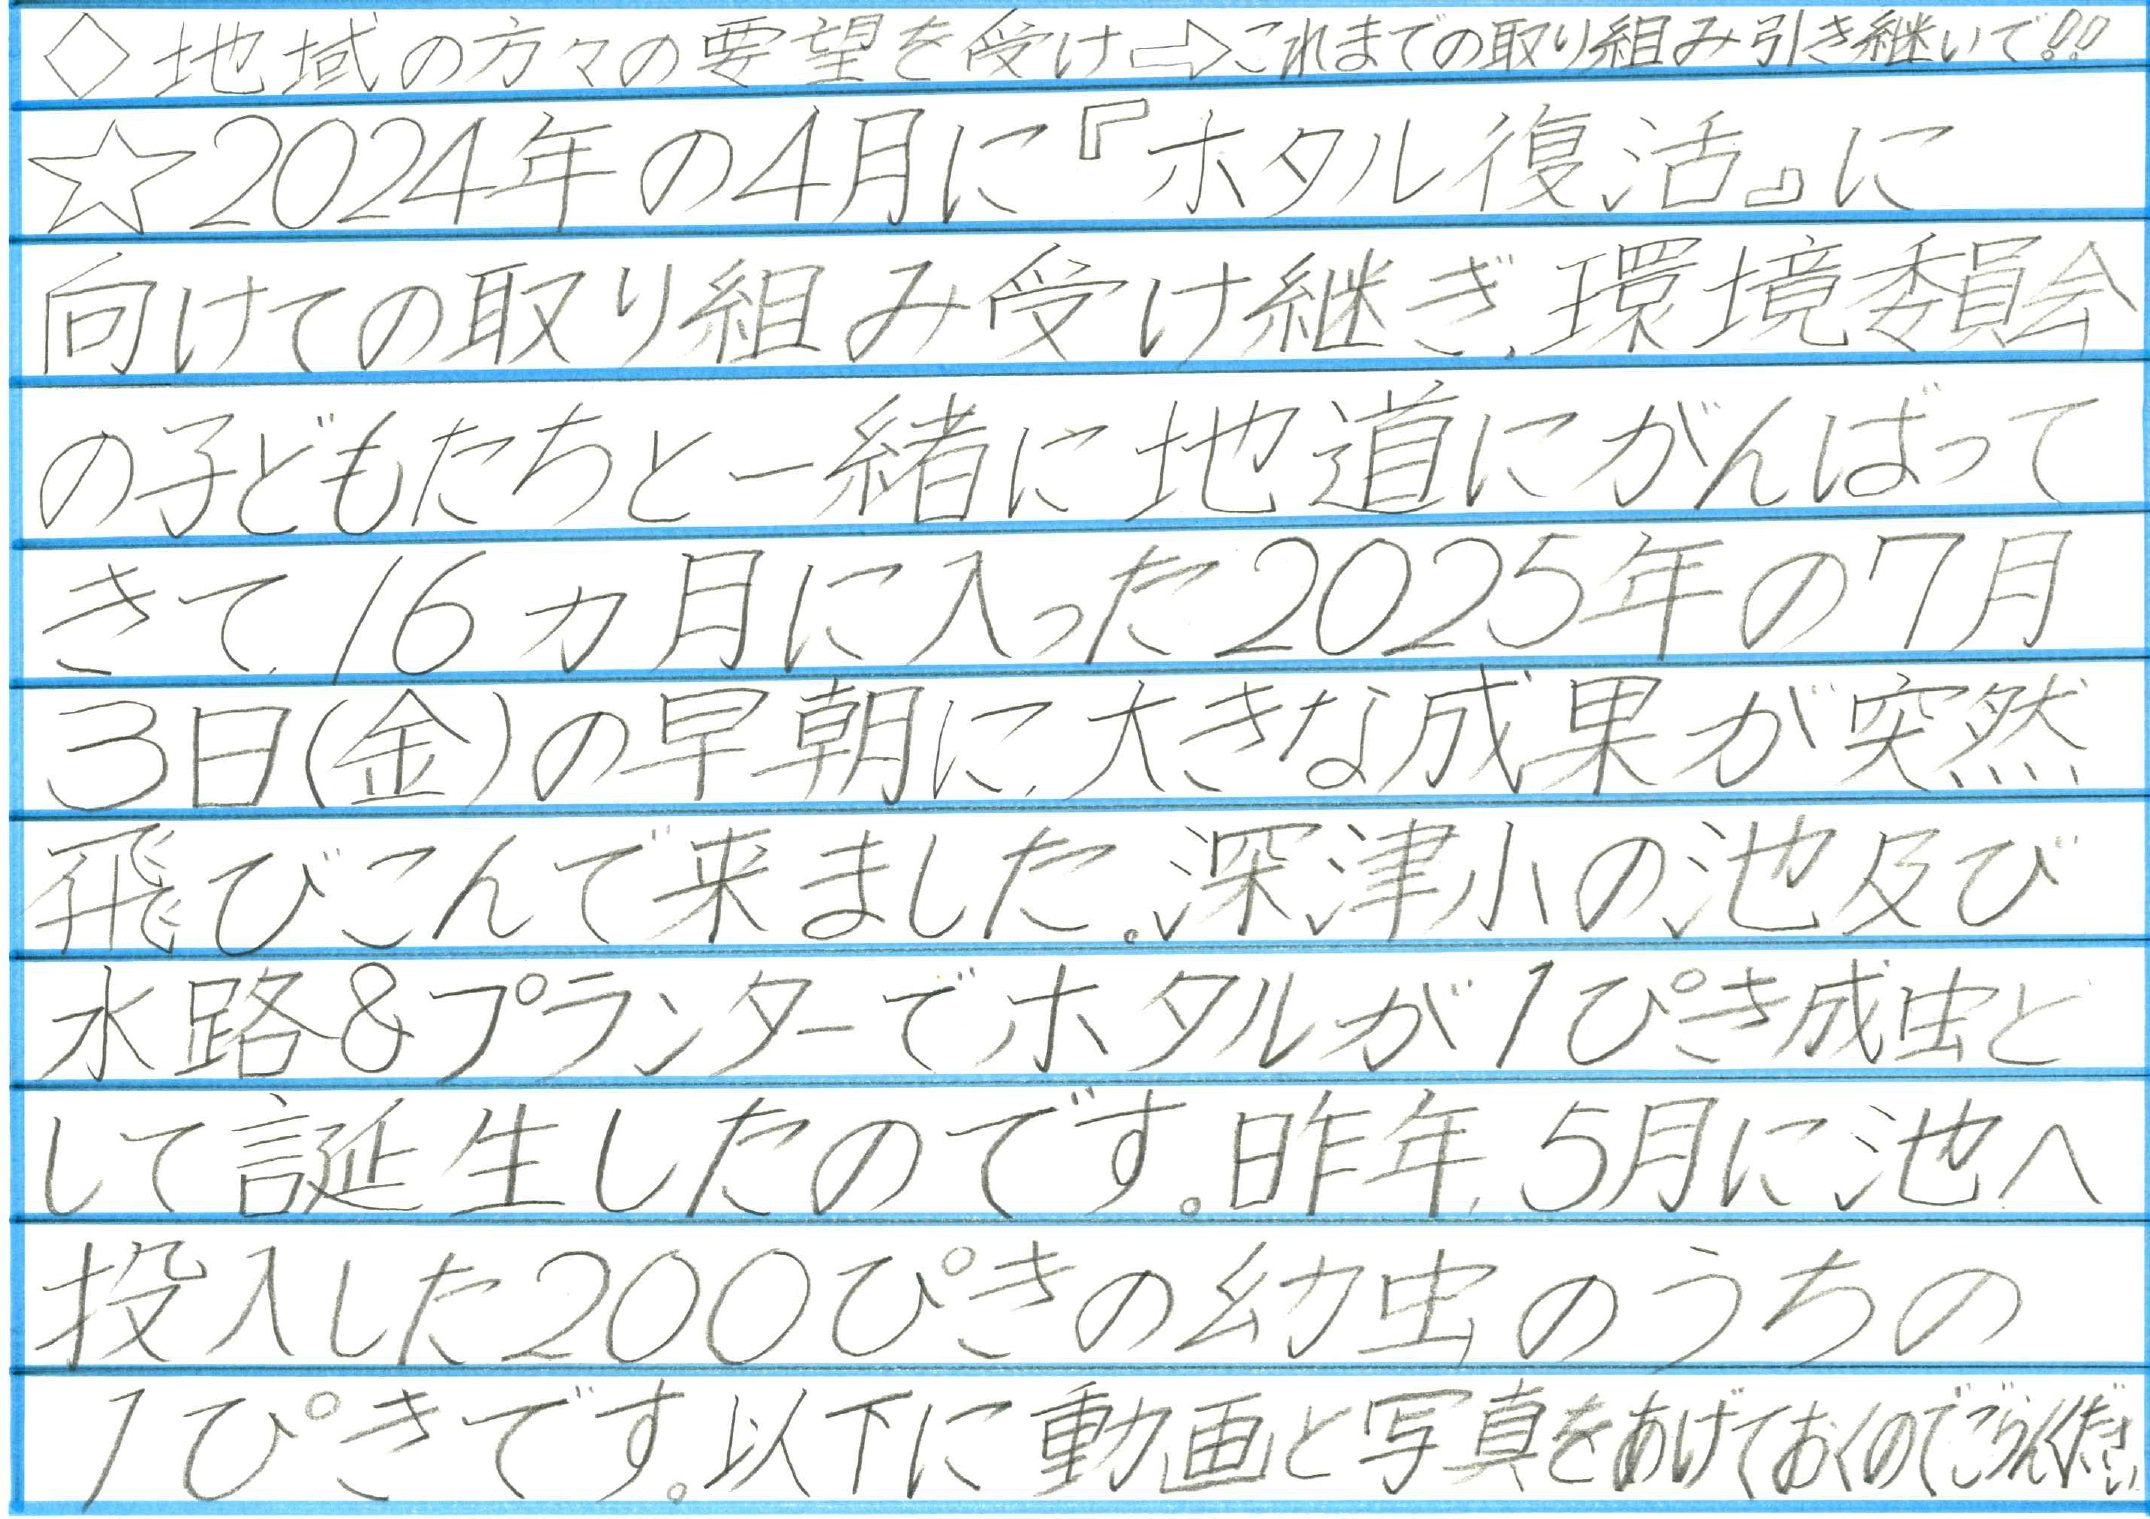 ◇地域の方々の要望を受け⇨これまでの取り組み引き継いで!!
☆2024年の4月に『ホタル復活』に
向けての取り組み受け継ぎ、環境委員会
の子どもたちと一緒に地道にがんばって
きて、16ヵ月に入った2025年の7月
3日(金)の早朝に、大きな成果が突然
飛びこんで来ました。深津小の池及び
水路&プランターでホタルが1ぴき成虫と
して誕生したのです。昨年、5月に池へ
投入した200ぴきの幼虫のうちの
1ぴきです。以下に動画と写真をあげておくのでごらんください。